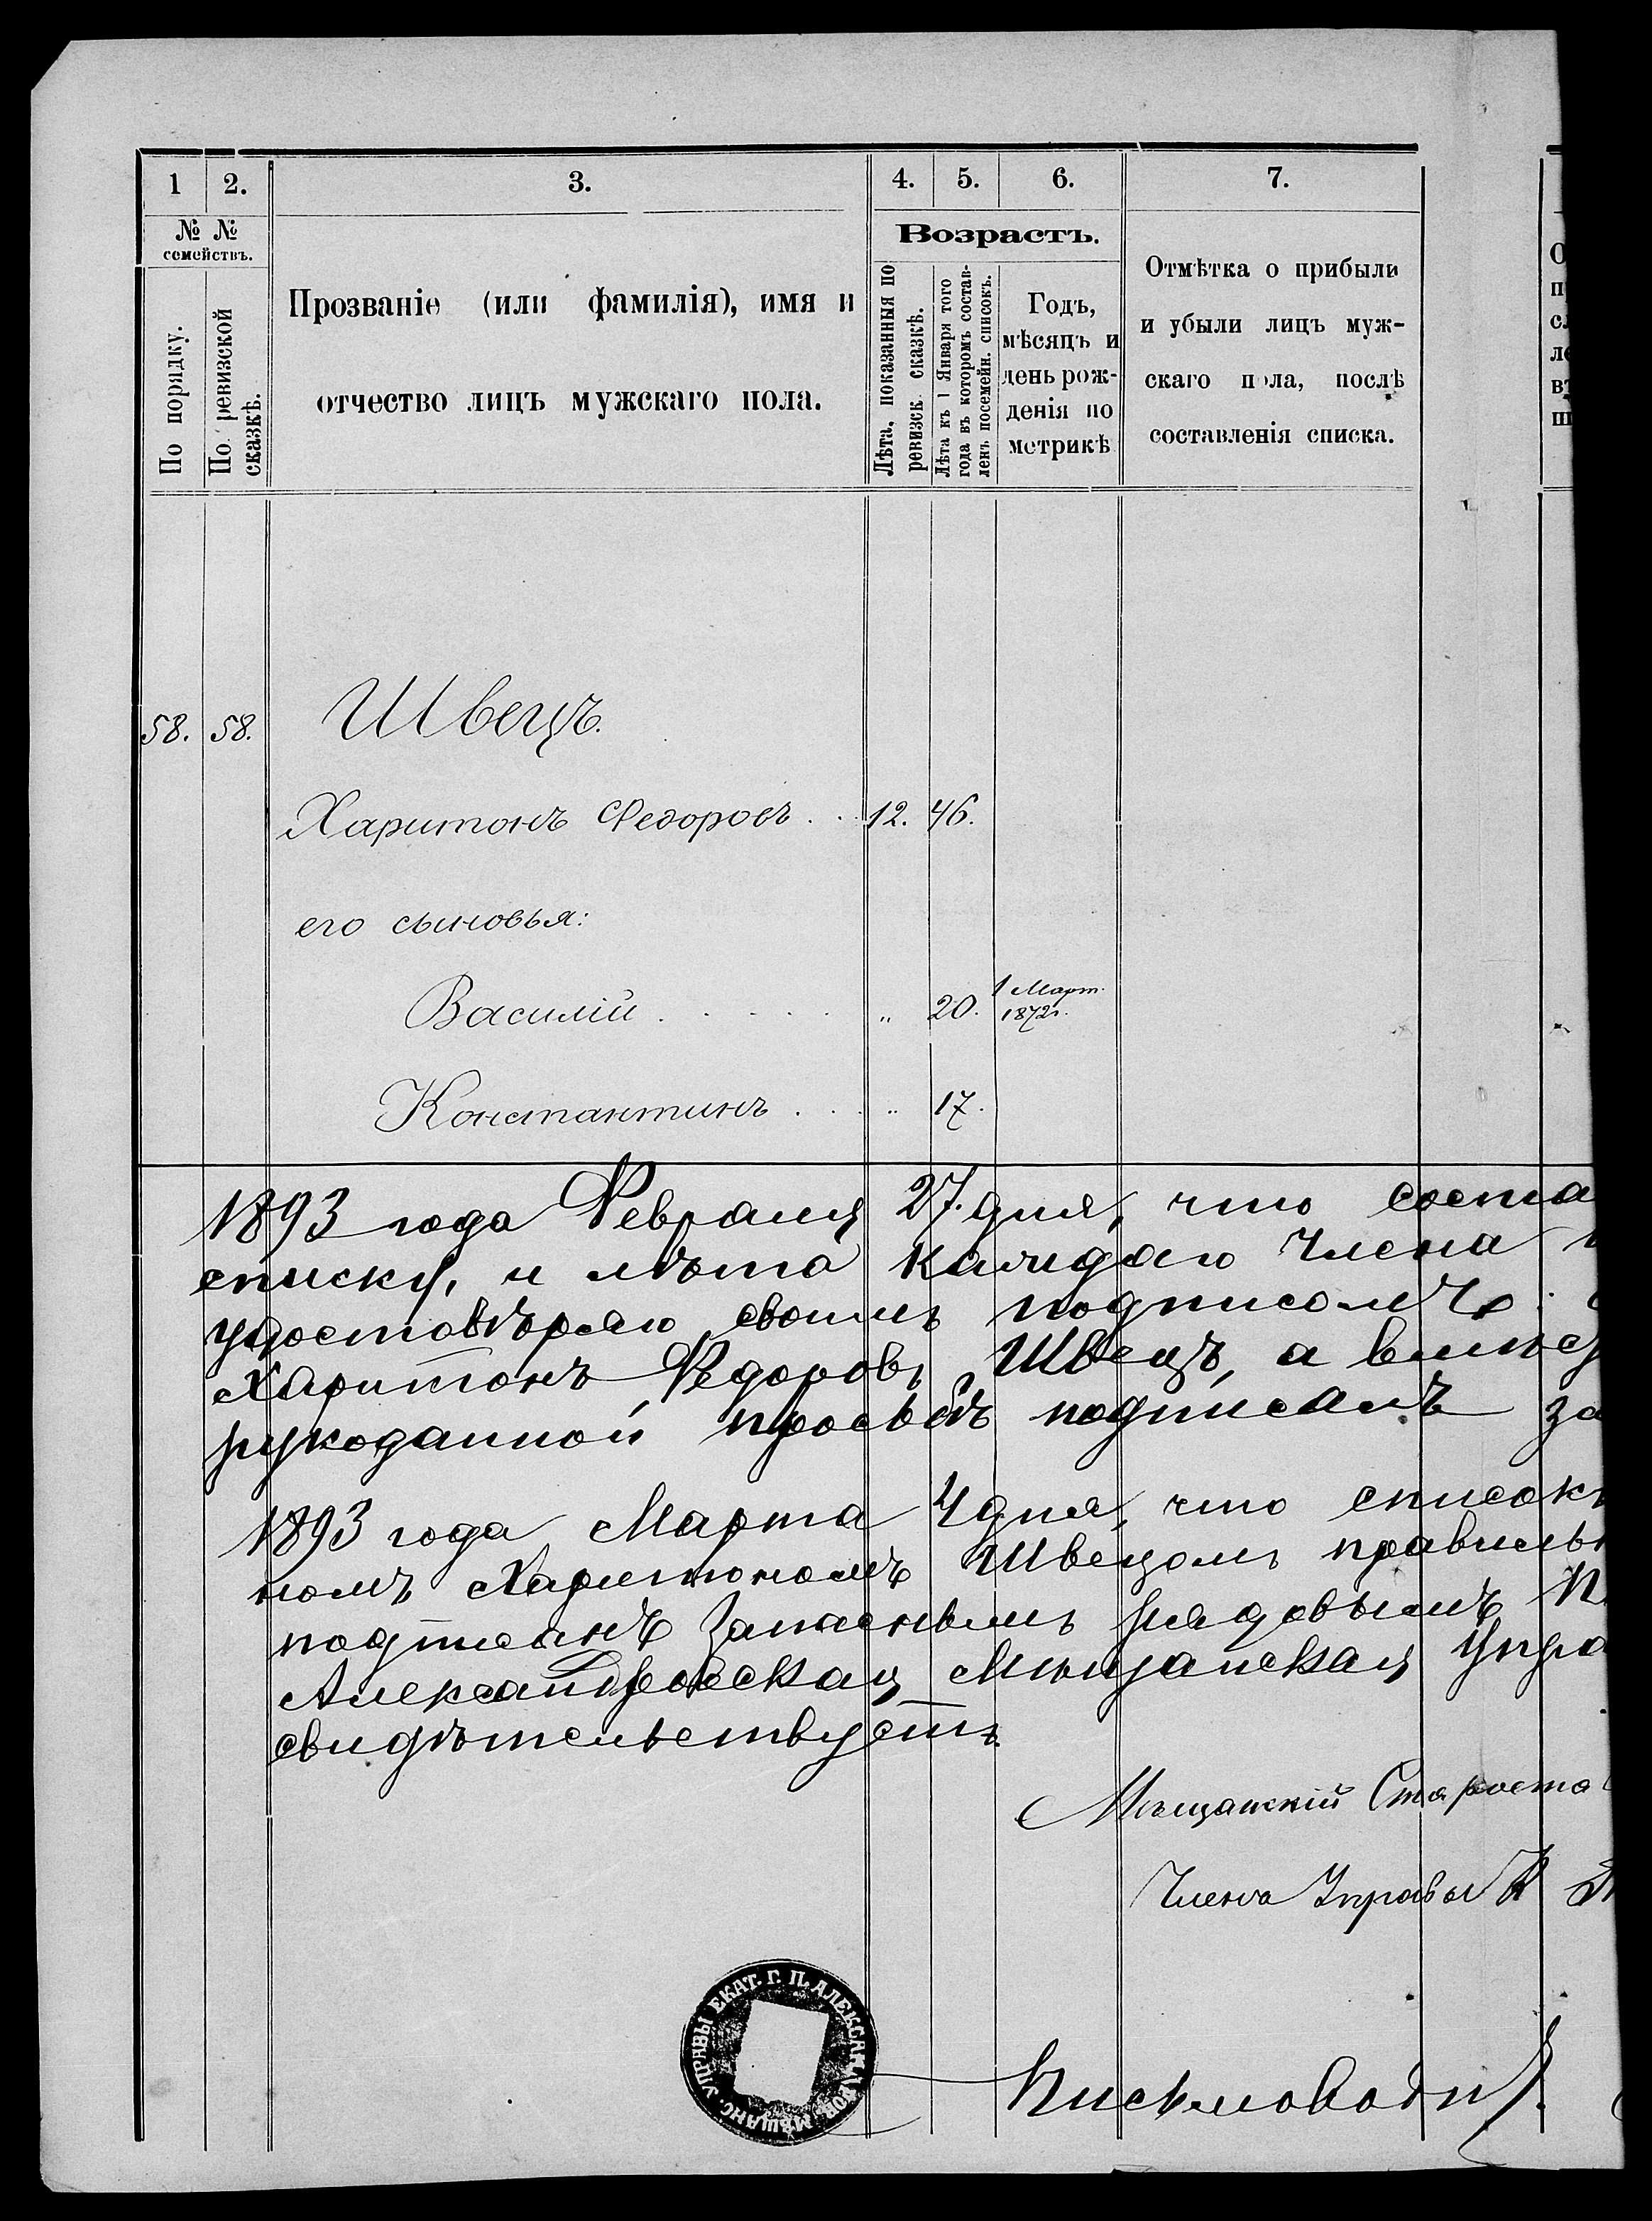 1 2. 3. 4. 5. 6. 7.
№ № семействъ.
По порядку.
По ревизской сказкѣ.
Прозваніе (или фамилія), имя и
отчество лицъ мужскаго пола.
Возрастъ.
Лѣта, показанныя по
ревизск. сказкѣ.
Лѣта къ 1 Января того
года въ которомъ состав-
ленъ посемейн. списокъ.
Годъ,
мѣсяцъ и
день рож-
денія по
метрикѣ
Отмѣтка о прибыли
и убыли лицъ муж-
скаго пола, послѣ
составленія списка.
58. 58. Швецъ.
Харитонъ Федоровъ . . 12. 46.
его сыновья:
Василій . . . . . „ 20. 1 Март.
1872г.
Константинъ . . . „ 17.
1893 года Февраля 27. дня, что соста
списку, и лѣта каждаго члена
удостовѣряю своимъ подписомъ
Харитонъ Федоровъ Швецъ, а
рукоданной просьбѣ подписалъ за
1893 года Марта 4 дня, что списокъ
номъ Харитономъ Швецомъ правильн
подписанъ Запаснымъ рядовымъ
Александровская Мѣщанская Упра
свидѣтельствуетъ.
Мѣщанскій Староста
Члена Управы
УПРАВЫ ЕКАТ. Г. П. АЛЕКСАНДРОВ. МѢЩАНС.
Письмоводи